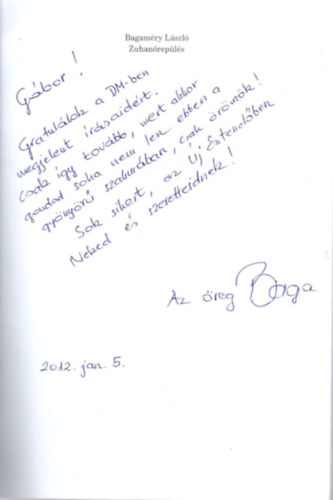 Bagaméry László
Zuhanórepülés
Gábor!
Gratulálok a DM-ben
megjelent írásaidért.
Csak így tovább, mert akkor
gondod soha nem lesz ebben a
gyönyörű szakmában, csak örömök!
Sok sikert, az Új Esztendőben
Neked és szeretteidnek!
Az öreg Baga
2012. jan. 5.